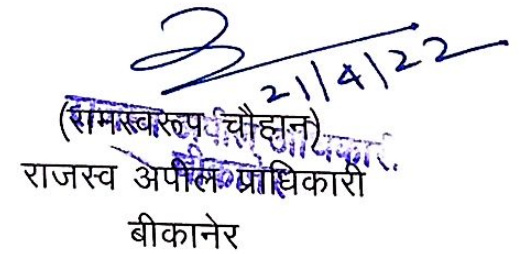 21/4/22
(रामस्वरूप चौहान)
राजस्व अपील प्राधिकारी
बीकानेर